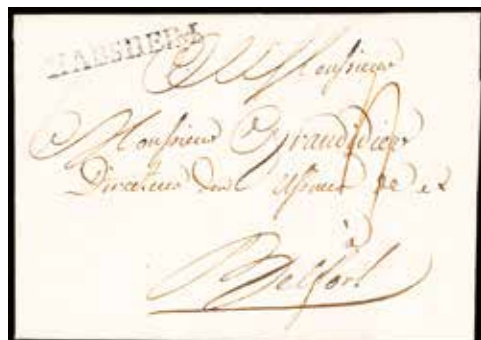 HABSHEIM
Monsieur
Monsieur Grandidier
Directeur des
à
Belfort